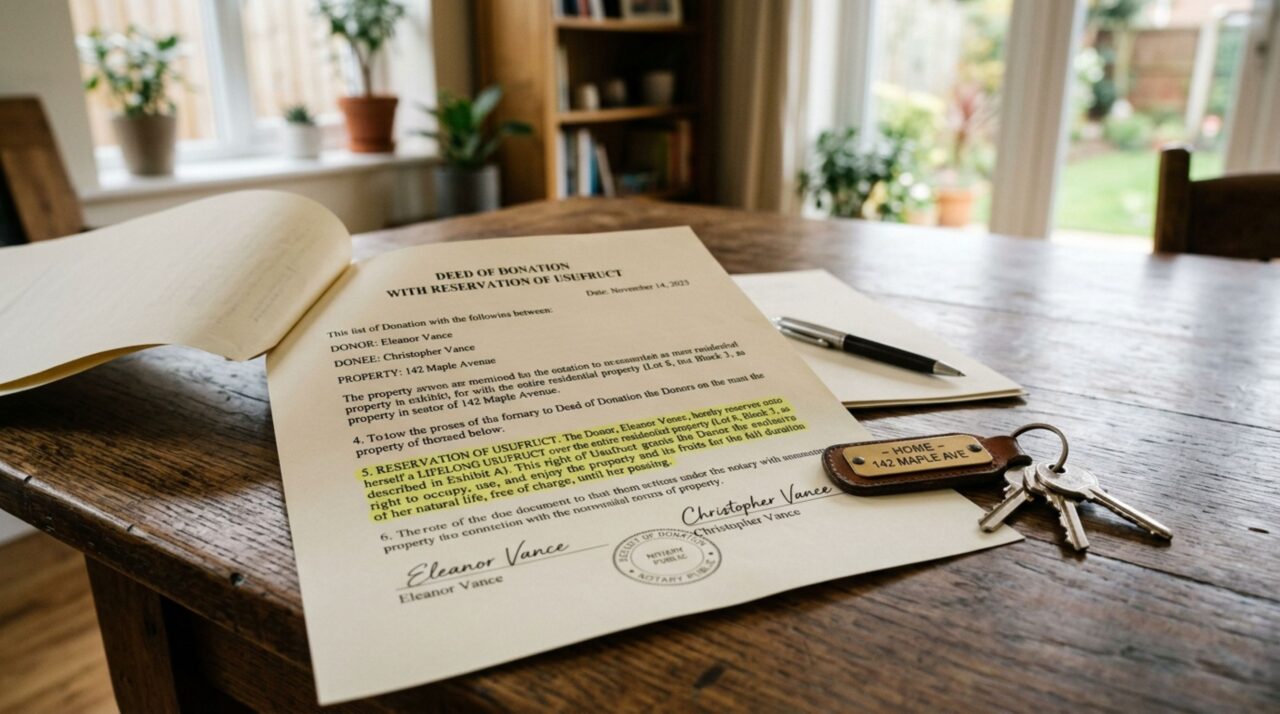 DEED OF DONATION
WITH RESERVATION OF USUFRUCT
Date: November 14, 2023
This list of Donation with the followins between:
DONOR: Eleanor Vance
DONEE: Christopher Vance
PROPERTY: 142 Maple Avenue
The property are the to as residential
property in for with the entire residential property (Lot Block 3, as
property in of 142 Maple Avenue.
4. the proses of the to Deed of Donation the Donors on the the
property of below.
5. RESERVATION OF USUFRUCT. The Donor, Eleanor hereby
herself a LIFELONG USUFRUCT over the entire residential property (Lot Block 3, as
described in Exhibit A). This right of Usufruct grants the the
right to occupy, use, and enjoy the property and its fruits for the full duration
of her natural life, free of charge, until her passing.
6. The of the document to that them under the notary with
property connection with the of property.
Christopher Vance
Christopher Vance
Eleanor Vance
Eleanor Vance
OF DONATION
NOTARY
PUBLIC
NOTARY PUBLIC
– HOME –
142 MAPLE AVE